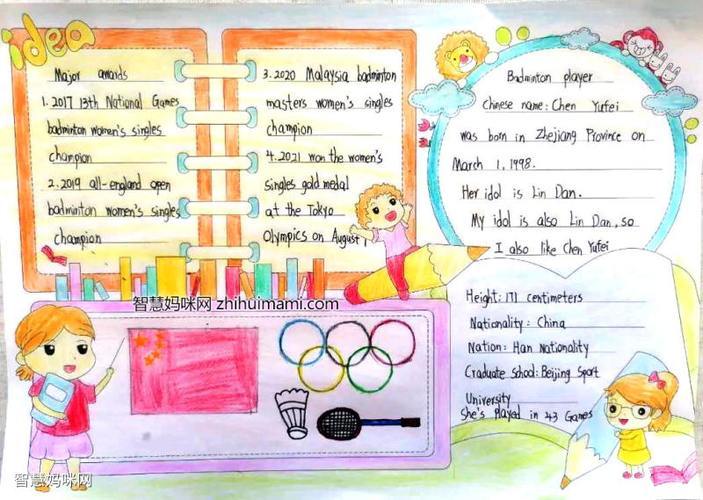 idea
Major awards
1. 2017 13th National Games
badminton women's singles
champion
2. 2019 all-england open
badminton women's singles
champion
3. 2020 Malaysia badminton
masters women's singles
champion
4. 2021 won the women's
singles gold medal
at the Tokyo
Olympics on August 1
Badminton player
Chinese name: Chen Yufei
was born in Zhejiang Province on
March 1, 1998.
Her idol is Lin Dan.
My idol is also Lin Dan, so
I also like Chen Yufei
Height: 171 centimeters
Nationality: China
Nation: Han Nationality
Graduate school: Beijing Sport
University
She's played in 43 Games
智慧妈咪网 zhihuimami.com
智慧妈咪网